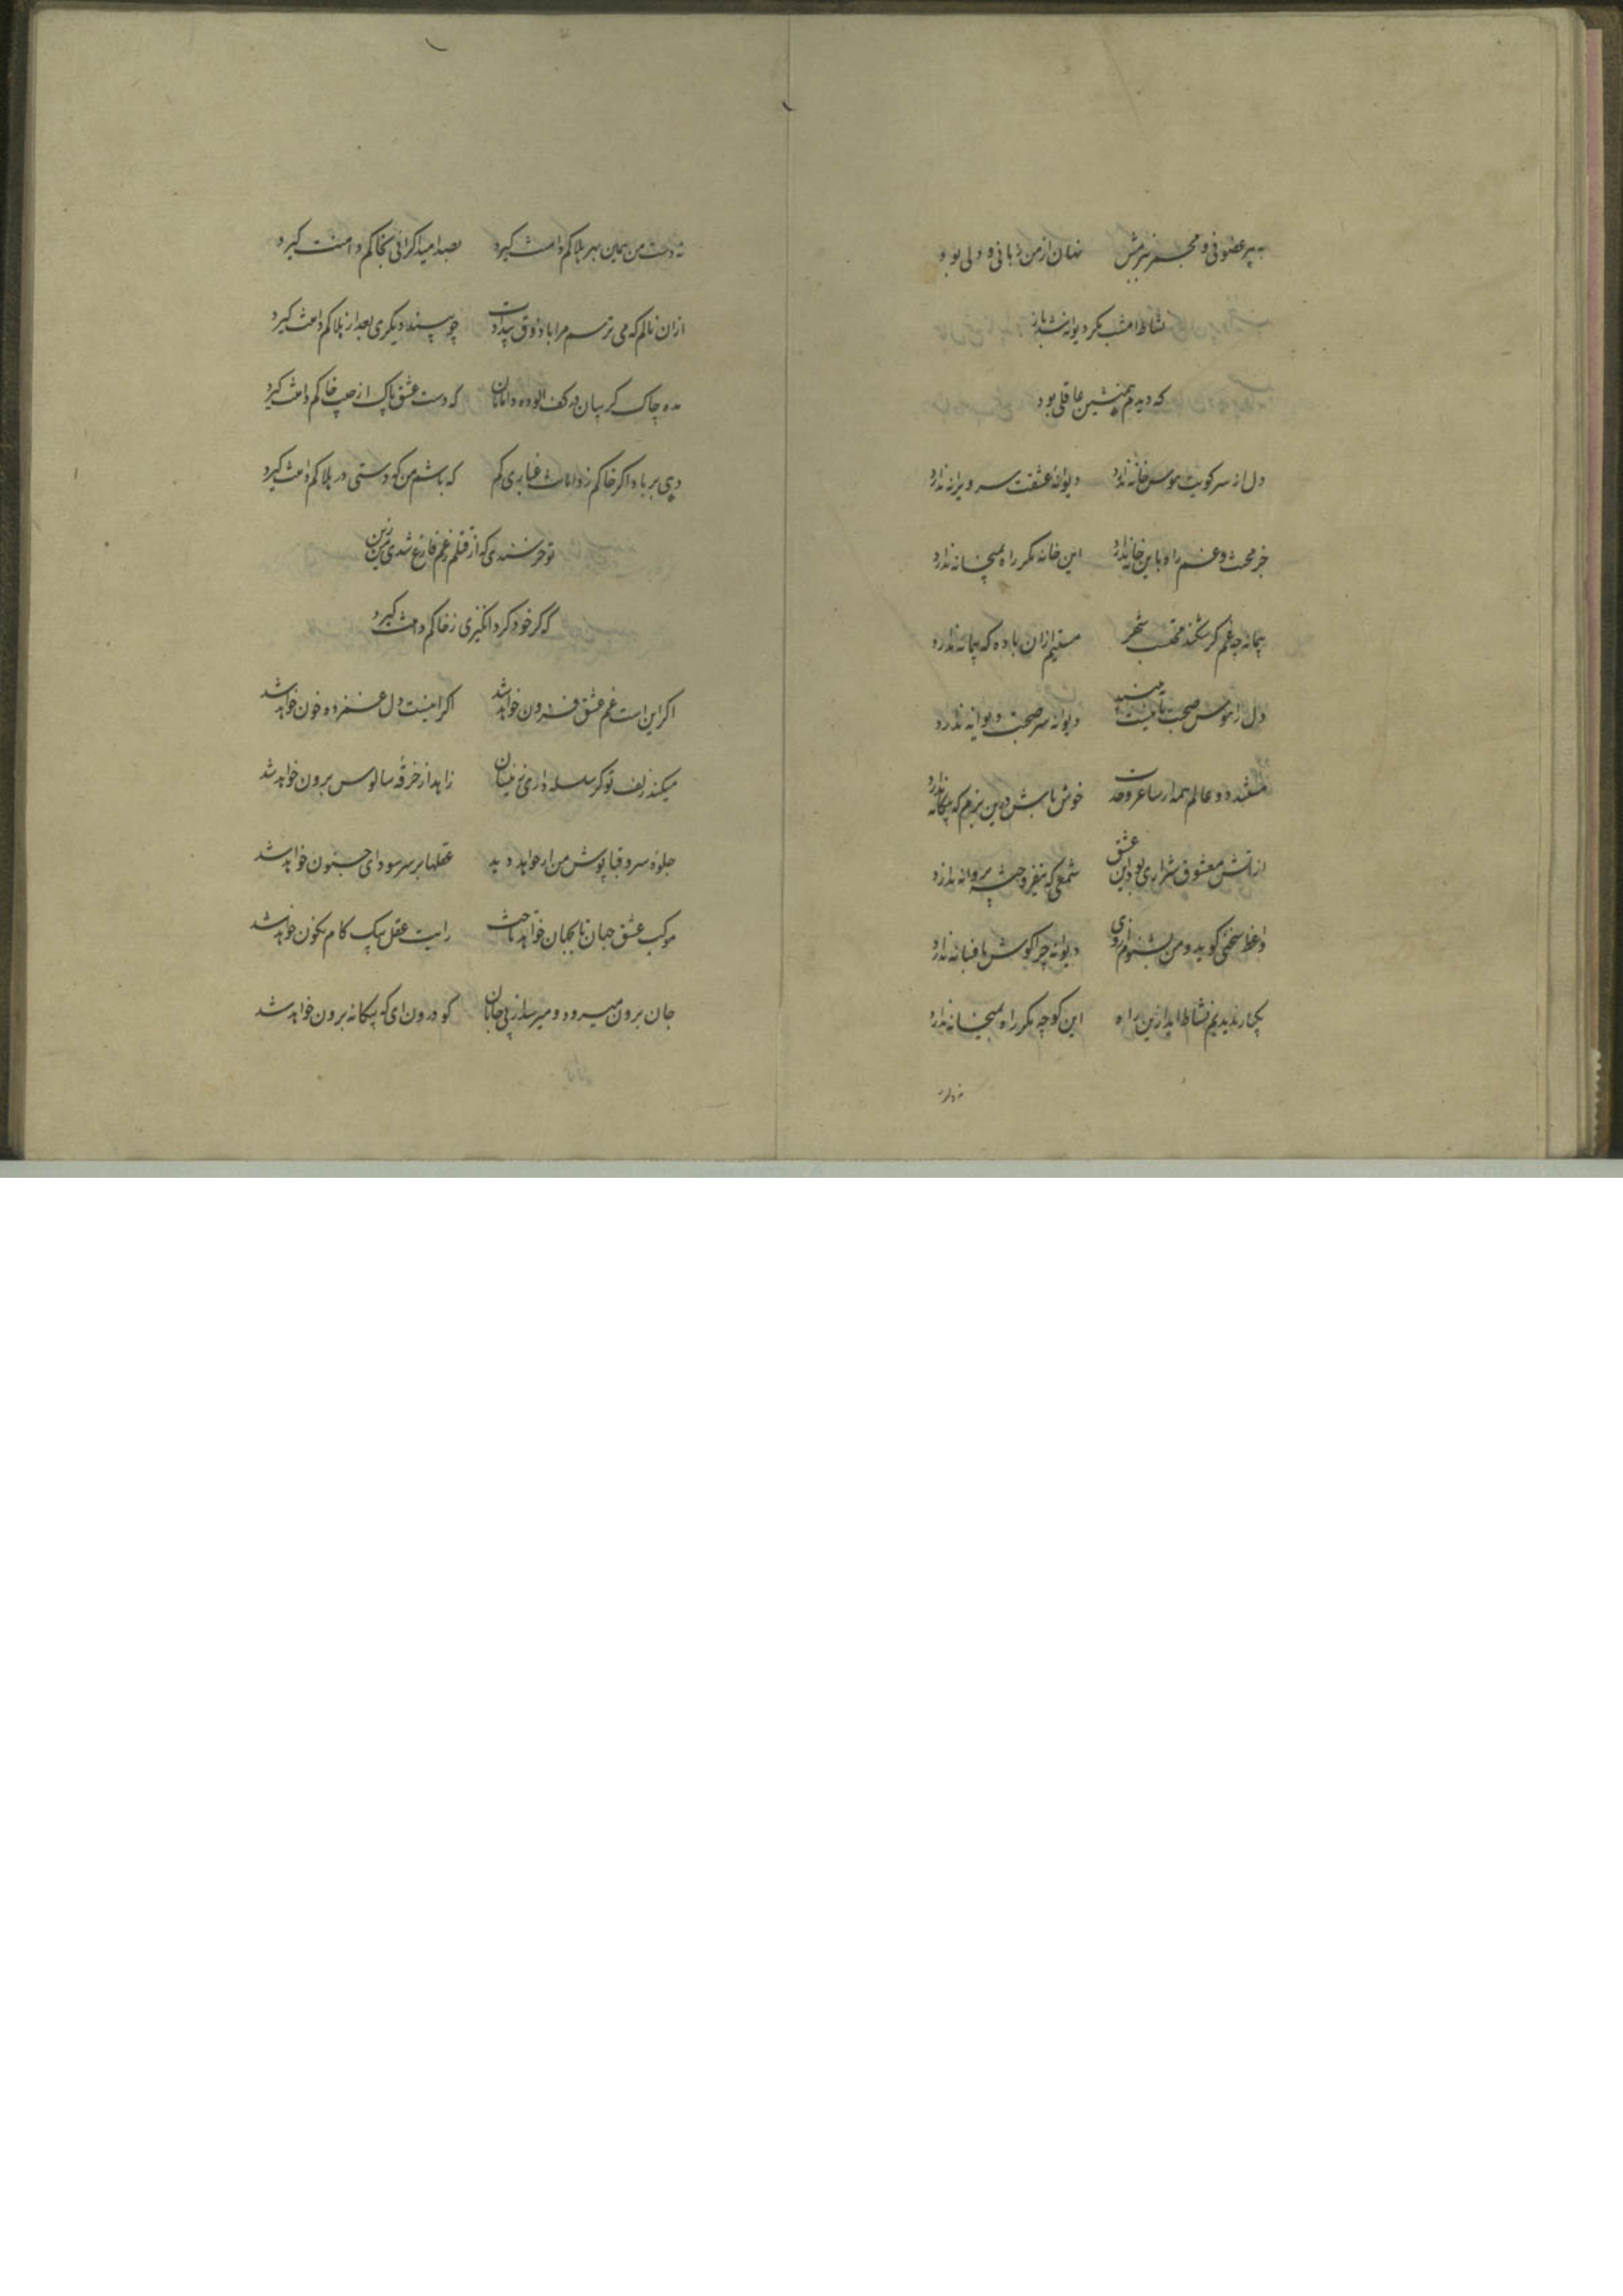 بهر عضوی و مجسر نرمش نهان از من زبانی و دلی بود
نشاط امشب مکر دیوانه شد باز
که دیدم همنشین عاقلی بود
دل از سر کویت هوس خانه ندارد دیوانه عشقت سر ویرانه ندارد
جز محنت و غم راه باین خانه ندارد این خانه مکر راه بمیخانه ندارد
پیمانه چه غم کر شکند محتسب شهر مستیم ازان باده که پیمانه ندارد
دل را هوس صحبت ما نیست دیوانه سر صحبت دیوانه ندارد
مستند دو عالم همه از ساغر وحدت خوش باش درین بزم که بیکانه ندارد
از آتش معشوق شراری بود این عشق شمعی که نیفروخت پروانه ندارد
واعظ سخنی کوید و من نشنوم آری دیوانه چرا کوش بافسانه ندارد
یکبار ندیدیم نشاط اید ازین راه این کوچه مکر راه بمیخانه ندارد
نه دست من همین بهر هلاکم دامنت کیرد بصد امید اکر ائی بخاکم دامنت کیرد
ازان نالم که می ترسم مرا با ذوق بیدادت چو بیند دیکری بعد از هلاکم دامنت کیرد
مده چاک کریبان در کف الوده دامانان که دست عشق پاک از جیب خاکم دامنت کیرد
دهی بر باد اکر خاکم ز دامانت غباری کم که باشم من که دستی در هلاکم دامنت کیرد
تو خرسندی که از قتلم ز غم فارغ شدی زین
که کر خود کرد انکیزی ز خاکم دامنت کیرد
اکر این است غم عشق فزون خواهد شد اکر اینست دل غمزده خون خواهد شد
میکند زلف تو کر سلسله داری زینسان زاهد از خرقه سالوس برون خواهد شد
جلوه سرو قبا پوش من ار خواهد دید عقلها بر سر سودای جنون خواهد شد
موکب عشق جهان تا بجهان خواهد تاخت رایت عقل بیک کام نکون خواهد شد
جان برون میرود و میرسد از پی جانان کو درون ای که بیکانه برون خواهد شد